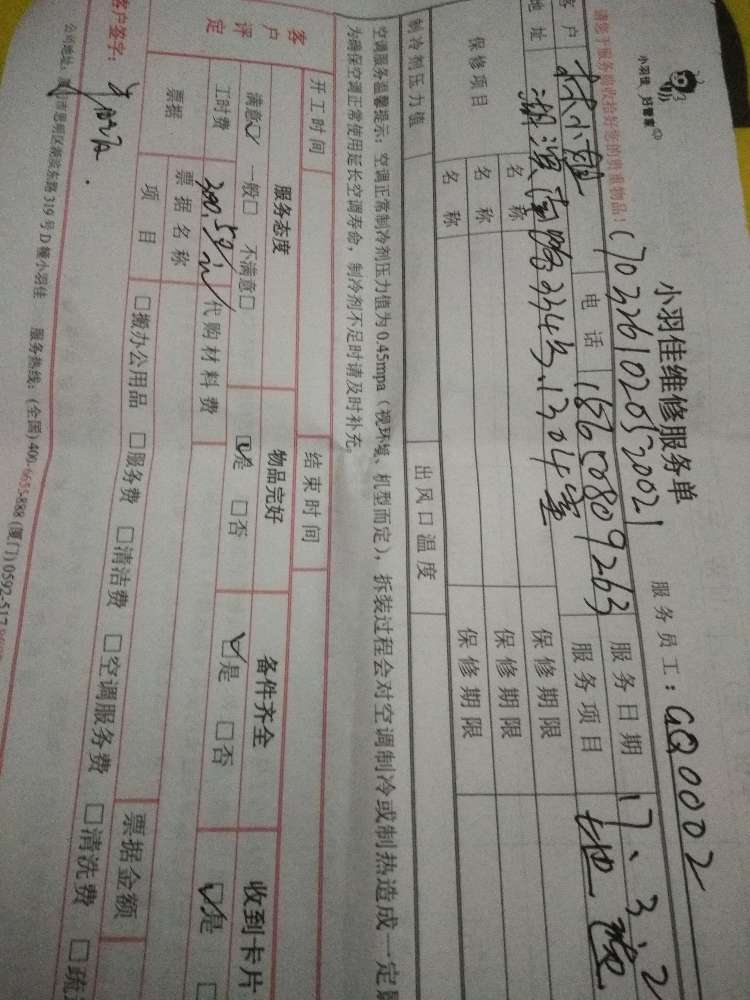 小羽佳 好管家
小羽佳维修服务单
服务员工：GQ0002
请您于服务前收拾好您的贵重物品！
1702261020520021
客户 林小姐 电话 18650809263 服务日期 17、3、2
地址 湖滨南路334号1304室 服务项目 地
保修项目 名称 保修期限
名称 保修期限
名称 保修期限
制冷剂压力值 出风口温度
空调服务温馨提示：空调正常制冷剂压力值为0.45mpa（视环境、机型而定），拆装过程会对空调制冷或制热造成一定
为确保空调正常使用延长空调寿命，制冷剂不足时请及时补充。
开工时间 结束时间
客户评定 服务态度 物品完好 备件齐全 收到卡片
满意☑ 一般□ 不满意□ ☑是 □否 ☑是 □否 ☑是 □
工时费 代购材料费
票据 票据名称 票据金额
项目 □搬办公用品 □服务费 □清洁费 □空调服务费 □清洗费 □
客户签字：
公司地址：厦门市思明区湖滨东路319号D幢小羽佳 服务热线：(全国)400-6655-888 (厦门)0592-517